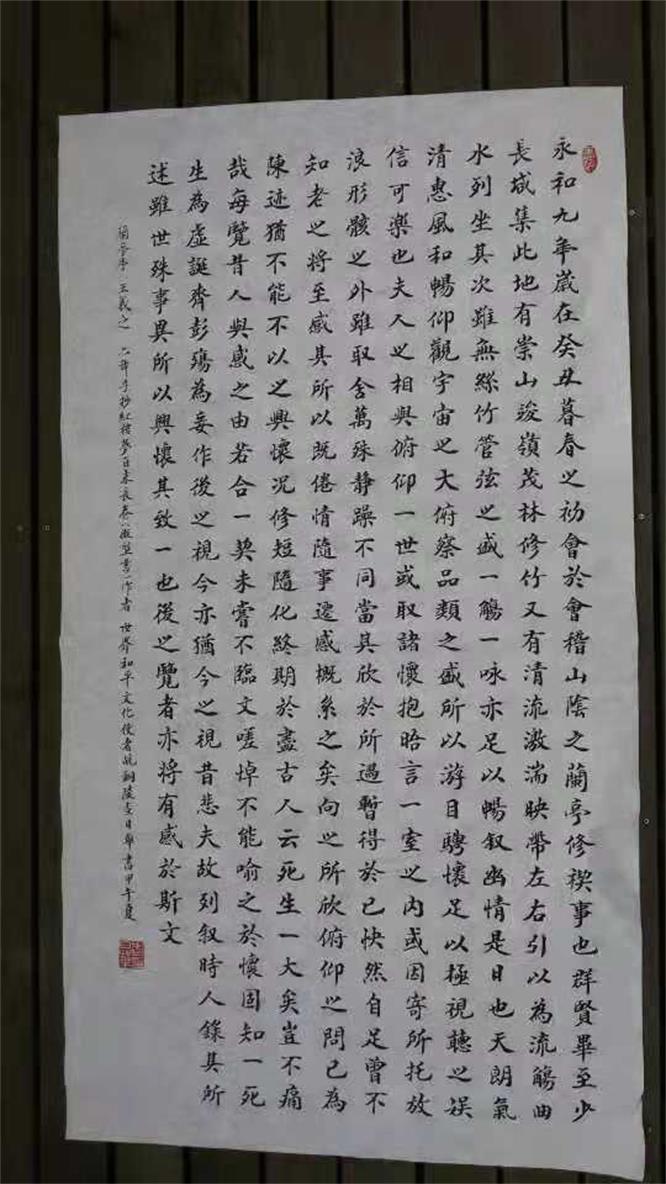 永和九年歲在癸丑暮春之初會於會稽山陰之蘭亭修禊事也群賢畢至少
長咸集此地有崇山峻嶺茂林修竹又有清流激湍映帶左右引以為流觴曲
水列坐其次雖無絲竹管弦之盛一觴一咏亦足以暢叙幽情是日也天朗氣
清惠風和暢仰觀宇宙之大俯察品類之盛所以游目騁懷足以極視聽之娛
信可樂也夫人之相與俯仰一世或取諸懷抱晤言一室之内或因寄所托放
浪形骸之外雖取舍萬殊静躁不同當其欣於所遇暫得於己快然自足曾不
知老之將至感其所以既倦情隨事遷感概系之矣向之所欣俯仰之間已為
陳迹猶不能不以之興懷况修短隨化終期於盡古人云死生一大矣豈不痛
哉每覽昔人興感之由若合一契未嘗不臨文嗟悼不能喻之於懷固知一死
生為虛誕齊彭殤為妄作後之視今亦猶今之視昔悲夫故列叙時人錄其所
述雖世殊事異所以興懷其致一也後之覽者亦將有感於斯文
蘭亭序 王羲之 手抄紅樓夢百米長卷 作者 世界和平文化使者皖銅陵 書甲午夏